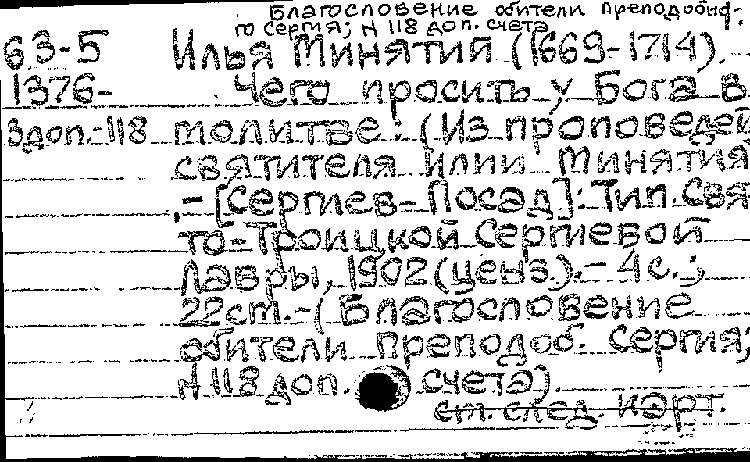 Благословение обители преподобно-
го Сергия; N 118 доп. счета
63-5 Илья Минятий (1669-1714).
1376- Чего просить у Бога в
3доп.-118 молитве: (Из проповедей
святителя Илии Минятия
.-[Сергиев-Посад]: Тип. Свя
то-Троицкой Сергиевой
Лавры, 1902 (ценз.).- 4с.;
22см.-(Благословение
обители Преподоб. Сергия;
N 118 доп. счета)
см. след. карт.